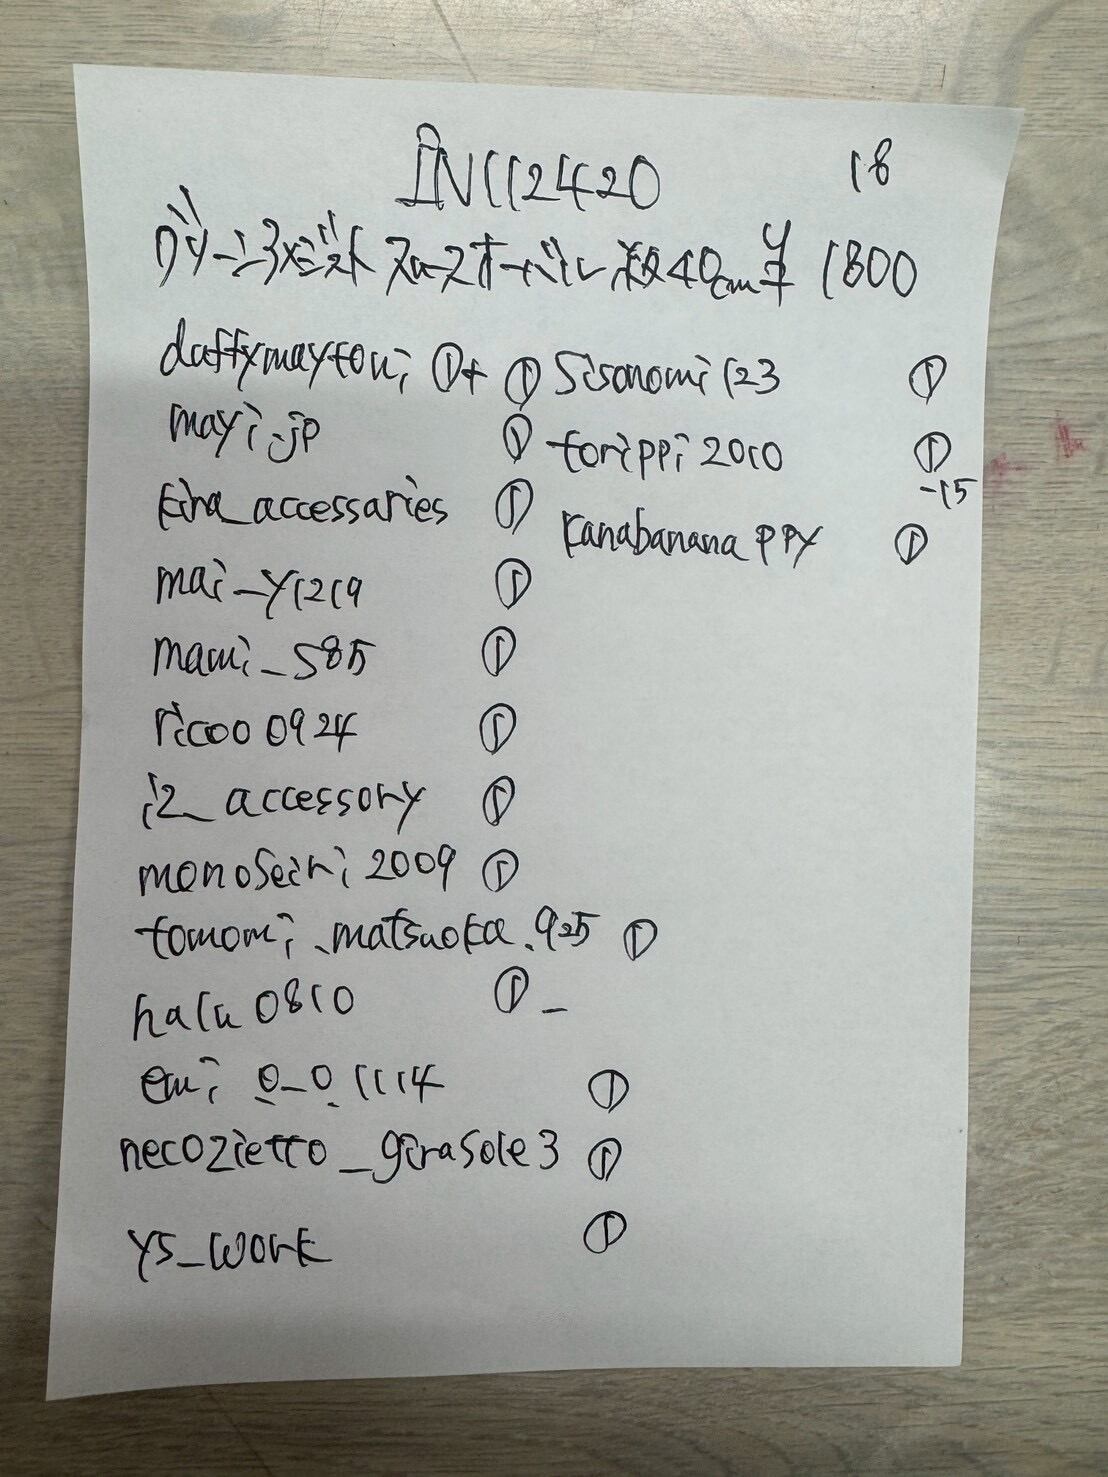 IN112420
18
オーバル 約40cm 1800
daffymaytoni ①+ ①
mayi.jp ①
kira_accessaries ①
mai_y1219 ①
mami_585 ①
ricoo0924 ①
i2_accessory ①
monoseiri2009 ①
tomomi.matsuoka.925 ①
halu0810 ① -
emi_0_0_1114 ①
necozietto_girasole3 ①
ys_work ①
Sisonomi123 ①
torippi2010 ①
-15
kanabananappy ①